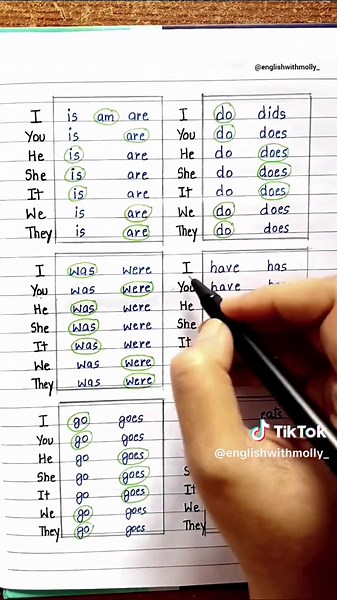 @englishwithmolly_
I is am are
You is are
He is are
She is are
It is are
We is are
They is are
I do dids
You do does
He do does
She do does
It do does
We do does
They do does
I was were
You was were
He was were
She was were
It was were
We was were
They was were
I have has
You have
He
She
It
I go goes
You go goes
He go goes
She go goes
It go goes
We go goes
They go goes
eats
TikTok
@englishwithmolly_
It
We
They